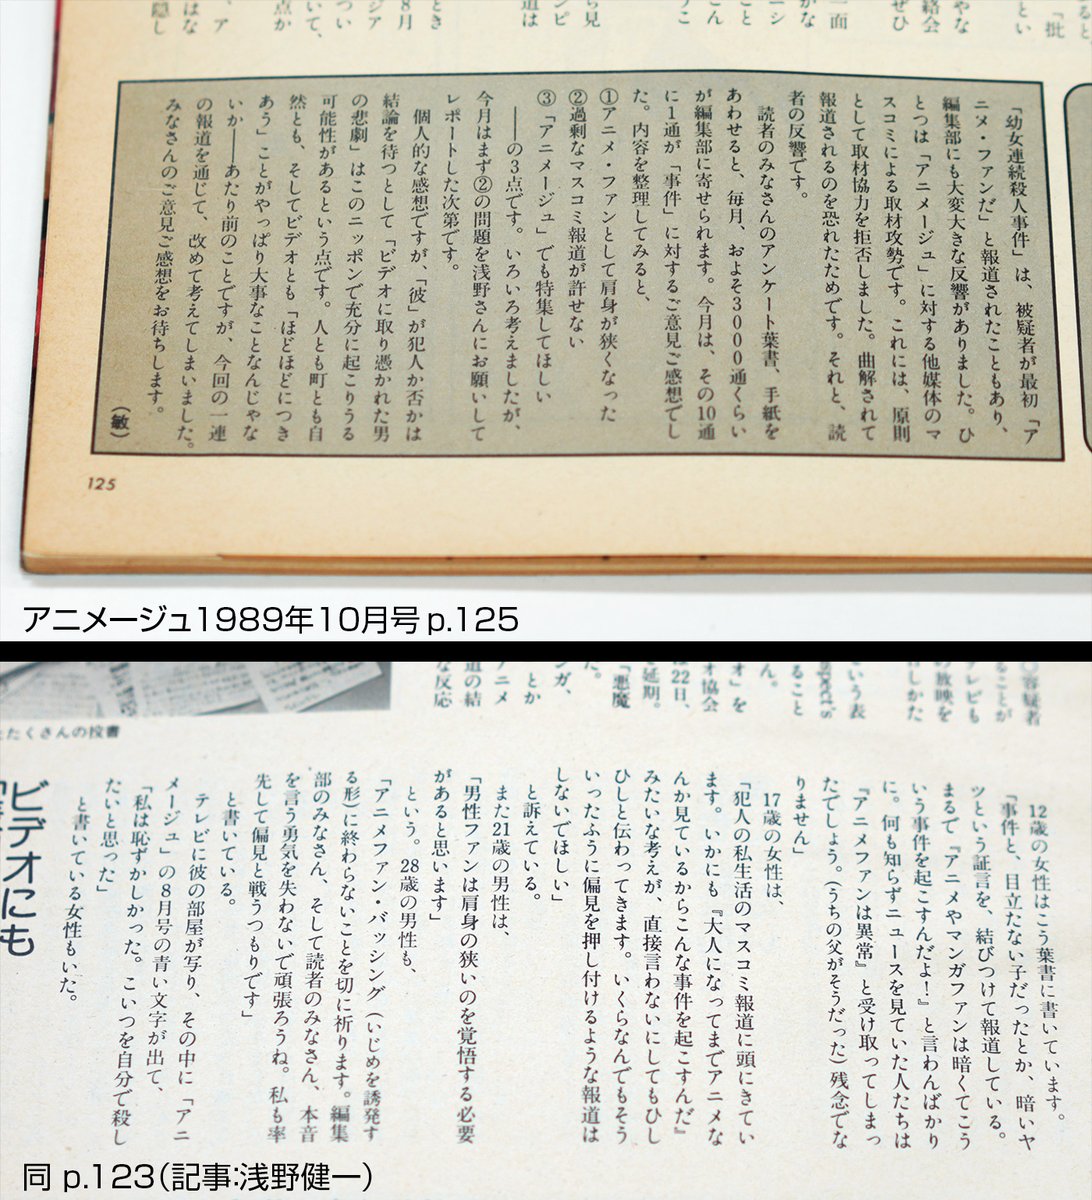 「幼女連続殺人事件」は、被疑者が最初「ア
ニメ・ファンだ」と報道されたこともあり、
編集部にも大変大きな反響がありました。ひ
とつは「アニメージュ」に対する他媒体のマ
スコミによる取材攻勢です。これには、原則
として取材協力を拒否しました。曲解されて
報道されるのを恐れたためです。それと、読
者の反響です。
読者のみなさんのアンケート葉書、手紙を
あわせると、毎月、およそ3000通くらい
が編集部に寄せられます。今月は、その10通
に1通が「事件」に対するご意見ご感想でし
た。内容を整理してみると、
①アニメ・ファンとして肩身が狭くなった
②過剰なマスコミ報道が許せない
③「アニメージュ」でも特集してほしい
――の3点です。いろいろ考えましたが、
今月はまず②の問題を浅野さんにお願いして
レポートした次第です。
個人的な感想ですが、「彼」が犯人か否かは
結論を待つとして「ビデオに取り憑かれた男
の悲劇」はこのニッポンで充分に起こりうる
可能性があるという点です。人とも町とも自
然とも、そしてビデオとも「ほどほどにつき
あう」ことがやっぱり大事なことなんじゃな
いか――あたり前のことですが、今回の一連
の報道を通じて、改めて考えてしまいました。
みなさんのご意見ご感想をお待ちします。
(敏)
125
アニメージュ1989年10月号 p.125
たくさんの投書
12歳の女性はこう葉書に書いています。
「事件と、目立たない子だったとか、暗いヤ
ツという証言を、結びつけて報道している。
まるで『アニメやマンガファンは暗くてこう
いう事件を起こすんだよ!』と言わんばかり
に。何も知らずニュースを見ていた人たちは
『アニメファンは異常』と受け取ってしまっ
たでしょう。(うちの父がそうだった)残念でな
りません」
17歳の女性は、
「犯人の私生活のマスコミ報道に頭にきてい
ます。いかにも『大人になってまでアニメな
んか見ているからこんな事件を起こすんだ』
みたいな考えが、直接言わないにしてもひし
ひしと伝わってきます。いくらなんでもそう
いったふうに偏見を押し付けるような報道は
しないでほしい」
と訴えている。
また21歳の男性は、
「男性ファンは肩身の狭いのを覚悟する必要
があると思います」
という。28歳の男性も、
「アニメファン・バッシング(いじめを誘発す
る形)に終わらないことを切に祈ります。編集
部のみなさん、そして読者のみなさん、本音
を言う勇気を失わないで頑張ろうね。私も率
先して偏見と戦うつもりです」
と書いている。
テレビに彼の部屋が写り、その中に「アニ
メージュ」の8月号の青い文字が出て、
「私は恥ずかしかった。こいつを自分で殺し
たいと思った」
と書いている女性もいた。
ビデオにも
同 p.123(記事:浅野健一)